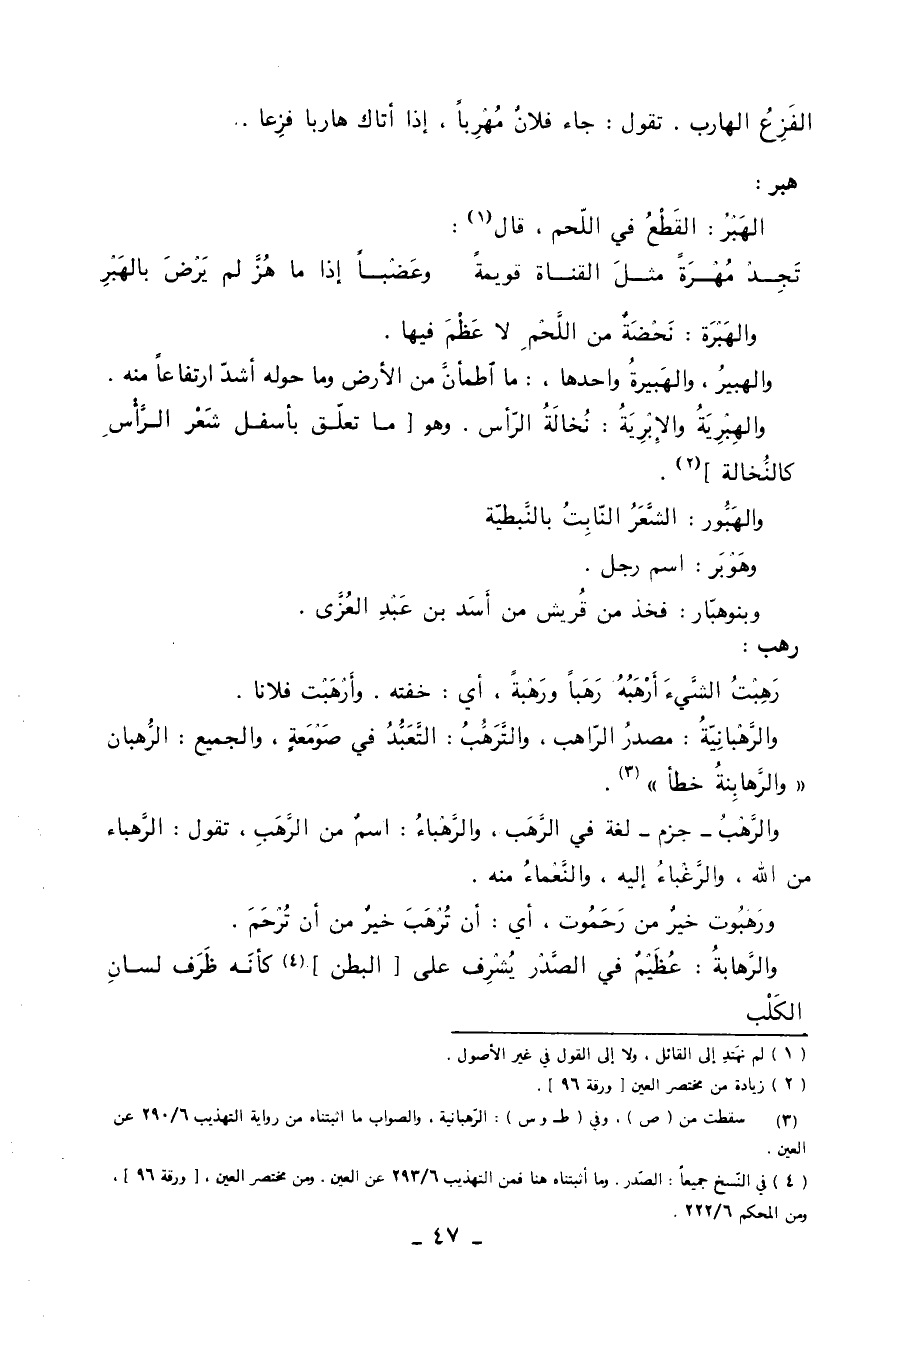 الفَزِعُ الهارب . تقول : جاء فلانٌ مُهْرِباً ، إذا أتاك هاربا فزِعا ..
هبر :
الهَبْرُ : القَطْعُ في اللّحم ، قال(١) :
تَجِدْ مُهْرَةً مثلَ القناة قويمةً وعَضْباً إذا ما هُزَّ لم يَرْضَ بالهَبْرِ
والهَبْرَة : نَحْضَةٌ من اللَّحْمِ لا عَظْمَ فيها .
والهبيرُ ، والهَبيرةُ واحدها ، : ما اَطمأنَّ من الأرض وما حوله أشدّ ارتفاعاً منه .
والهِبْرِيَةُ والإبْرِيَةُ : نُخالَةُ الرّأس . وهو [ ما تعلّق بأسفل شَعْر الرَّأْسِ
كالنُّخالة ](٢) .
والهَبُّور : الشَّعَرُ النّابِتُ بالنَّبطيّة
وهَوْبَر : اسم رجل .
وبنوهبّار : فخذ من قُريش من أَسَد بن عَبْدِ العُزَّى .
رهب :
رَهِبْتُ الشَّيءَ أَرْهَبُهُ رَهَباً ورَهْبةً ، أي : خفته . وأَرْهَبْت فلانا .
والرَّهْبانِيّةُ : مصدرُ الراهب ، والتَّرَهُّبُ : التَّعَبُّدُ في صَوْمَعةٍ ، والجميع : الرُّهبان
« والرَّهابِنةُ خطأ » (٣) .
والرَّهْبُ ـ جزم ـ لغة في الرَّهَب ، والرَّهْباءُ : اسمٌ من الرَّهَبِ ، تقول : الرَّهباء
من الله ، والرَّغْباءُ إليه ، والنَّعْماءُ منه .
ورَهَبُوت خيرٌ من رَحَمُوت ، أي : أن تُرْهَبَ خيرٌ من أن تُرْحَمَ .
والرَّهابةُ : عُظَيْمٌ في الصَّدْر يُشْرِف على [ البطن ](٤) كأنّه طَرَف لسانِ
الكَلْب
( ١ ) لم نهتدِ إلى القائل ، ولا إلى القول في غير الأصول .
( ٢ ) زيادة من مختصر العين [ ورقة ٩٦ ] .
(٣) سقطت من ( ص ) ، وفي ( ط و س ) : الرّهبانية ، والصواب ما اثبتناه من رواية التهذيب ٢٩٠/٦ عن
العين .
( ٤ ) في النّسخ جميعاً : الصّدر . وما أثبتناه هنا فمن التهذيب ٢٩٣/٦ عن العين . ومن مختصر العين ، [ ورقة ٩٦ ] ،
ومن المحكم ٢٢٢/٦ .
ـ ٤٧ ـ